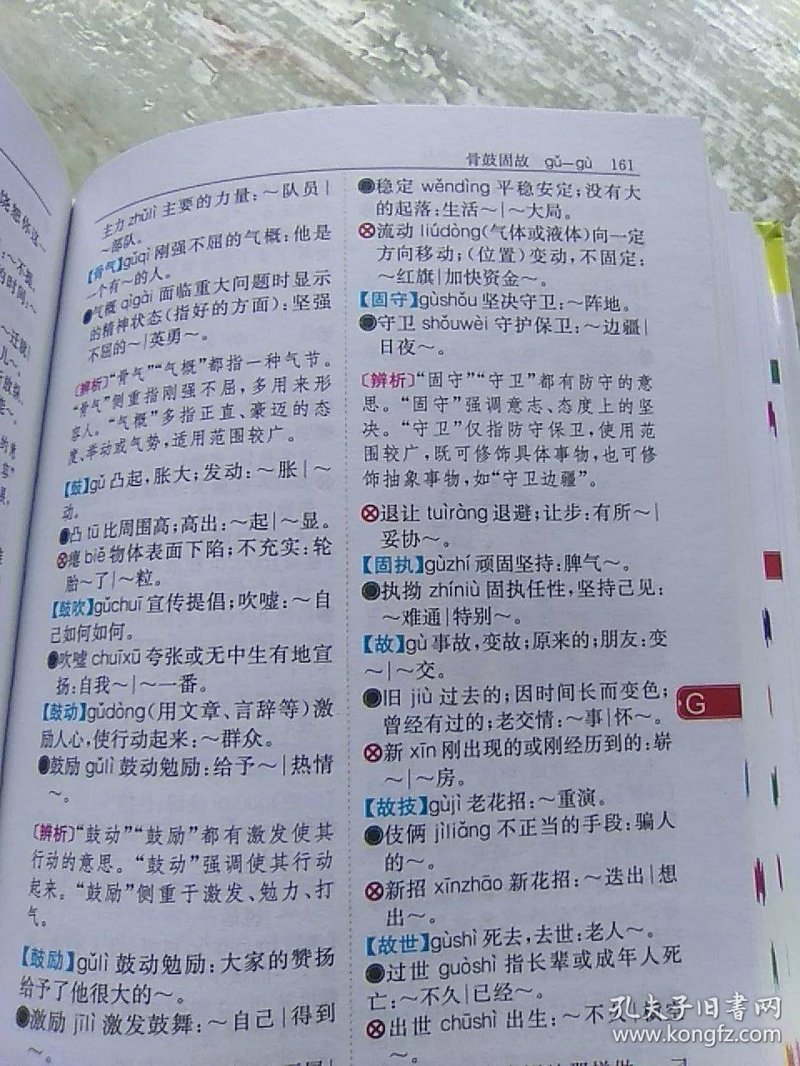 骨鼓固故 gǔ—gù 161
主力 zhǔlì 主要的力量：～队员|
～部队。
【骨气】gǔqì 刚强不屈的气概：他是
一个有～的人。
●气概 qìgài 面临重大问题时显示
的精神状态(指好的方面)：坚强
不屈的～|英勇～。
〔辨析〕“骨气”“气概”都指一种气节。
“骨气”侧重指刚强不屈，多用来形
容人。“气概”多指正直、豪迈的态
度、举动或气势，适用范围较广。
【鼓】gǔ 凸起，胀大；发动：～胀|～
动。
●凸 tū 比周围高；高出：～起|～显。
⊗瘪 biě 物体表面下陷；不充实：轮
胎～了|～粒。
【鼓吹】gǔchuī 宣传提倡；吹嘘：～自
己如何如何。
●吹嘘 chuīxū 夸张或无中生有地宣
扬：自我～|～一番。
【鼓动】gǔdòng(用文章、言辞等)激
励人心，使行动起来：～群众。
●鼓励 gǔlì 鼓动勉励：给予～|热情
～。
〔辨析〕“鼓动”“鼓励”都有激发使其
行动的意思。“鼓动”强调使其行动
起来。“鼓励”侧重于激发、勉力、打
气。
【鼓励】gǔlì 鼓动勉励：大家的赞扬
给予了他很大的～。
●激励 jīlì 激发鼓舞：～自己|得到
～。
●稳定 wěndìng 平稳安定；没有大
的起落：生活～|～大局。
⊗流动 liúdòng(气体或液体)向一定
方向移动；(位置)变动，不固定：
～红旗|加快资金～。
【固守】gùshǒu 坚决守卫：～阵地。
●守卫 shǒuwèi 守护保卫：～边疆|
日夜～。
〔辨析〕“固守”“守卫”都有防守的意
思。“固守”强调意志、态度上的坚
决。“守卫”仅指防守保卫，使用范
围较广，既可修饰具体事物，也可修
饰抽象事物，如“守卫边疆”。
⊗退让 tuìràng 退避；让步：有所～|
妥协～。
【固执】gùzhí 顽固坚持：脾气～。
●执拗 zhíniù 固执任性，坚持己见：
～难通|特别～。
【故】gù 事故，变故；原来的；朋友：变
～|～交。
●旧 jiù 过去的；因时间长而变色；
曾经有过的；老交情：～事|怀～。
⊗新 xīn 刚出现的或刚经历到的：崭
～|～房。
【故技】gùjì 老花招：～重演。
●伎俩 jìliǎng 不正当的手段：骗人
的～。
⊗新招 xīnzhāo 新花招：～迭出|想
出～。
【故世】gùshì 死去，去世：老人～。
●过世 guòshì 指长辈或成年人死
亡：～不久|已经～。
⊗出世 chūshì 出生：～不
～。
G
孔夫子旧书网
www.kongfz.com